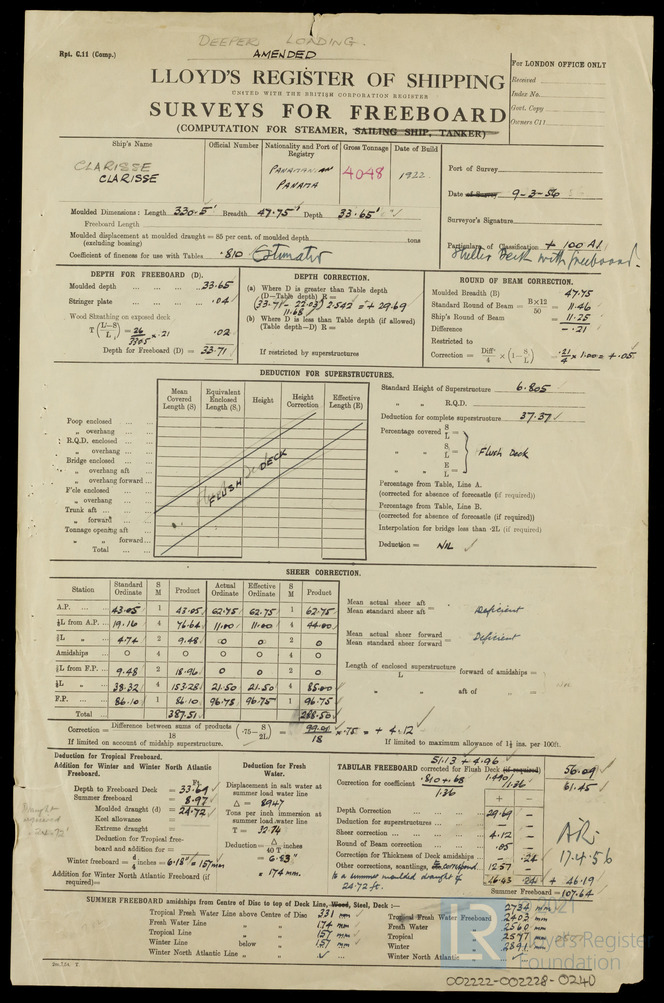 DEEPER LOADING.
Rpt. C.11 (Comp.)
AMENDED
LLOYD'S REGISTER OF SHIPPING
UNITED WITH THE BRITISH CORPORATION REGISTER
SURVEYS FOR FREEBOARD
(COMPUTATION FOR STEAMER, SAILING SHIP, TANKER)
For LONDON OFFICE ONLY
Received
Index No.
Govt. Copy
Owners C11
Ship's Name
Official Number
Nationality and Port of Registry
Gross Tonnage
Date of Build
CLARISSE
CLARISSE
PANAMANIAN
PANAMA
4048
1922
Port of Survey
Date of Survey 9-3-56
Surveyor's Signature
Particulars of Classification + 100 A1.
Shelter Deck with freeboard.
Moulded Dimensions: Length 330.5' Breadth 47.75' Depth 33.65'
Freeboard Length
Moulded displacement at moulded draught = 85 per cent. of moulded depth tons
(excluding bossing)
Coefficient of fineness for use with Tables .810 Estimated
DEPTH FOR FREEBOARD (D).
Moulded depth 33.65
Stringer plate .04
Wood Sheathing on exposed deck
T (L-S/L) = 26/330.5 × .21 .02
Depth for Freeboard (D) = 33.71
DEPTH CORRECTION.
(a) Where D is greater than Table depth
(D—Table depth) R =
(33.71 - 22.03) 2.542 = + 29.69
11.68
(b) Where D is less than Table depth (if allowed)
(Table depth—D) R =
If restricted by superstructures
ROUND OF BEAM CORRECTION.
Moulded Breadth (B) 47.75
Standard Round of Beam = B×12/50 = 11.46
Ship's Round of Beam = 11.25
Difference - .21
Restricted to
Correction = Diff/4 × (1-S/L) = .21/4 × 1.00 = +.05
DEDUCTION FOR SUPERSTRUCTURES.
Mean Covered Length (S)
Equivalent Enclosed Length (S₁)
Height
Height Correction
Effective Length (E)
Poop enclosed
„ overhang
R.Q.D. enclosed
„ overhang
Bridge enclosed
„ overhang aft
„ overhang forward
F'cle enclosed
„ overhang
Trunk aft
„ forward
Tonnage opening aft
„ „ forward
Total
FLUSH DECK
Standard Height of Superstructure 6.805
„ „ R.Q.D.
Deduction for complete superstructure 37.37
Percentage covered S/L =
„ „ S₁/L =
„ „ E/L =
Flush Deck
Percentage from Table, Line A.
(corrected for absence of forecastle (if required))
Percentage from Table, Line B.
(corrected for absence of forecastle (if required))
Interpolation for bridge less than ·2L (if required)
Deduction = NIL
SHEER CORRECTION.
Station
Standard Ordinate
S M
Product
Actual Ordinate
Effective Ordinate
S M
Product
A.P. 43.05 1 43.05 62.75 62.75 1 62.75
⅙L from A.P. 19.16 4 76.64 11.00 11.00 4 44.00
⅓L „ 4.74 2 9.48 0 0 2 0
Amidships 0 4 0 0 0 4 0
⅓L from F.P. 9.48 2 18.96 0 0 2 0
⅙L „ 38.32 4 153.28 21.50 21.50 4 85.00
F.P. 86.10 1 86.10 96.75 96.75 1 96.75
Total 387.51 288.50
Mean actual sheer aft
Mean standard sheer aft = Deficient
Mean actual sheer forward
Mean standard sheer forward = Deficient
Length of enclosed superstructure
L
forward of amidships =
„ „ aft of „ =
Correction = Difference between sums of products/18 (·75 - S/2L) = 99.01/18 × .75 = + 4.12
If limited on account of midship superstructure.
If limited to maximum allowance of 1½ ins. per 100ft.
Deduction for Tropical Freeboard.
Addition for Winter and Winter North Atlantic Freeboard.
Ft.
Depth to Freeboard Deck = 33.69
Summer freeboard = 8.97
Moulded draught (d) = 24.72
Keel allowance =
Extreme draught =
Deduction for Tropical freeboard and addition for =
Winter freeboard = d/4 inches = 6.18" = 157mm
Addition for Winter North Atlantic Freeboard (if required)=
Deduction for Fresh Water.
Displacement in salt water at summer load water line
Δ = 8947
Tons per inch immersion at summer load water line
T = 32.74
Deduction = Δ/40 T inches
= 6.83"
= 174 mm.
TABULAR FREEBOARD corrected for Flush Deck (if required)
51.13 + 4.96
56.09
Correction for coefficient .810+.68/1.36 1.490/1.36 61.45
+ -
Depth Correction 29.69 -
Deduction for superstructures - -
Sheer correction 4.12 -
Round of Beam correction .05 -
Correction for Thickness of Deck amidships - .24
Other corrections, scantlings, to correspond 12.57 -
to a summer moulded draught of
24.72 ft.
46.43 .24 + 46.19
Summer Freeboard = 107.64
17.4.56
SUMMER FREEBOARD amidships from Centre of Disc to top of Deck Line, Wood, Steel, Deck :— 2734 mm
Tropical Fresh Water Line above Centre of Disc 331 mm
Tropical Fresh Water Freeboard 2403 mm
Fresh Water Line „ „ 174 mm
Fresh Water „ 2560 mm
Tropical Line „ „ 157 mm
Tropical „ 2577 mm
Winter Line below „ 157 mm
Winter „ 2891 mm
Winter North Atlantic Line „ „
Winter North Atlantic „
© 2021
LR
Lloyd's Register
Foundation
002222-002228-0240